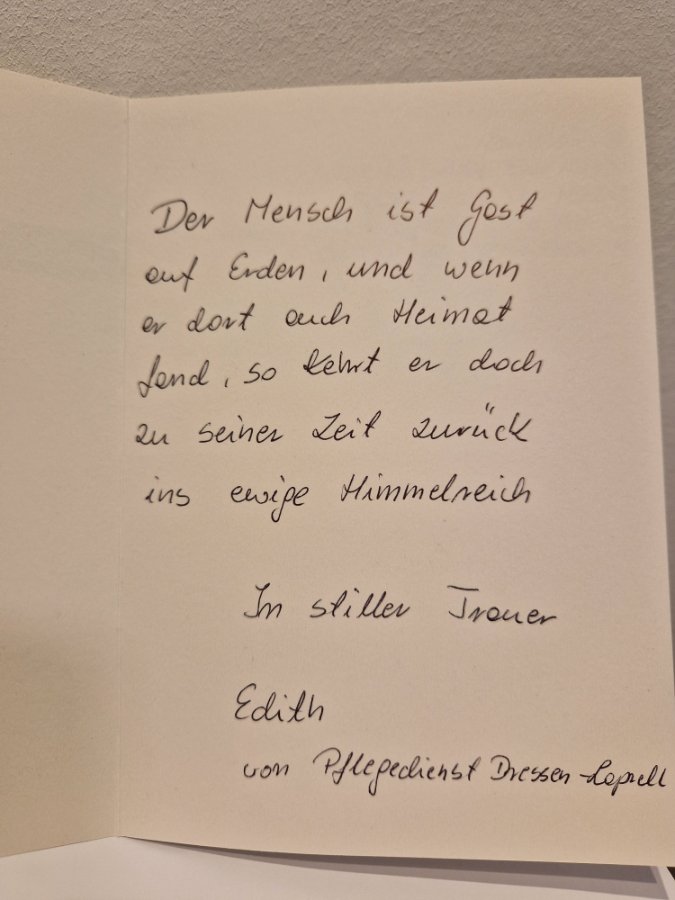 Der Mensch ist Gast
auf Erden, und wenn
er dort auch Heimat
fand, so kehrt er doch
zu seiner Zeit zurück
ins ewige Himmelreich
In stiller Trauer
Edith
von Pflegedienst Dressen-